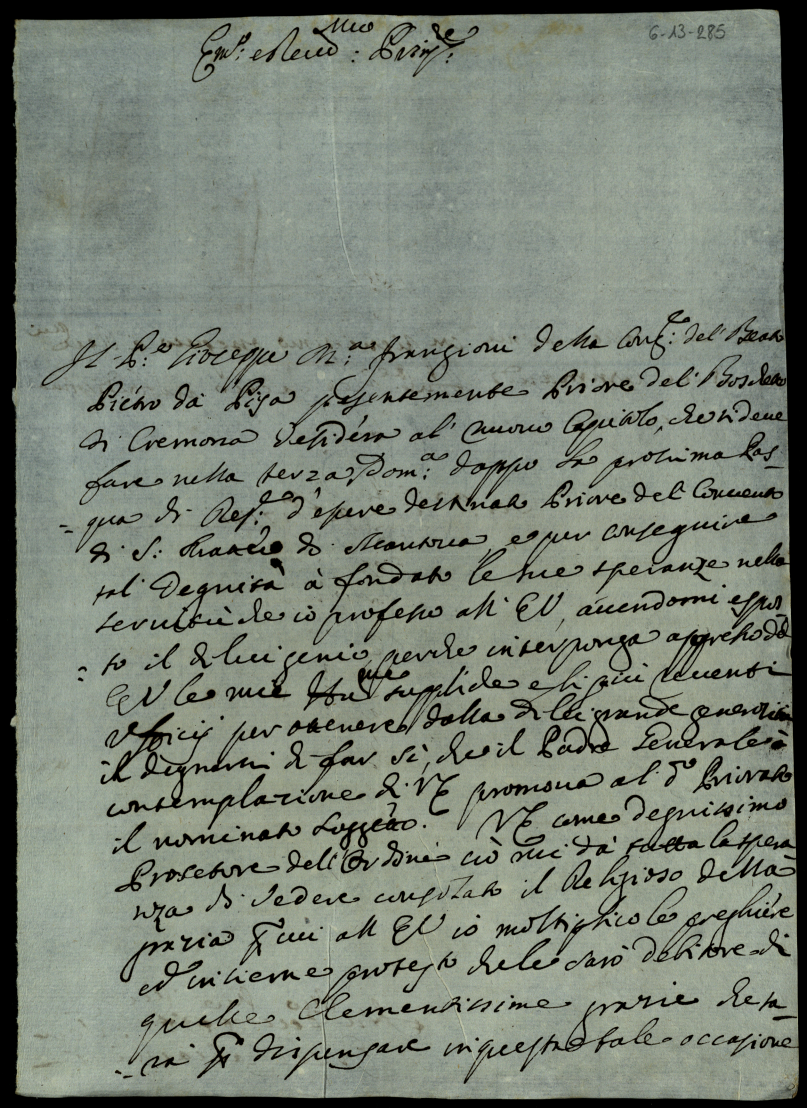 6-13-285
Em.o e Reud.mo Prin.pe
Il P.re Gioseppe M.a frangioni della Cong.e del Beato
Pietro da Pisa presentemente Priore del Boschetto
di Cremona desidera al nuouo Capitolo, che si deue
fare nella terza Dom.ca dappo la prosima Pas-
qua di Res.ne d'essere destinato Priore del Conuento
di S. di Mantoua, e per conseguire
tal Degnità à fondato le sue speranze nella
seruitù che io professo all EV, auendomi espos
to il di lui genio, perche interponga appresso
EV le mie suppliche e li più riuerenti
Vfficij per ottenere dalla di lei grande
il degnarsi di far sì, che il Padre Generale à
contemplazione di VE promoua al d.o Priorato
il nominato Soggetto. VE come degnissimo
Protetore dell'Ordine ciò mi dà tutta la spera
nza di Vedere consolato il Religioso della
grazia p cui all EV io moltiplico le preghiere
ed insieme protesto che le sarò debitore di
quelle Clementissime grazie che sa-
rà p dispensare in questa tale occasione